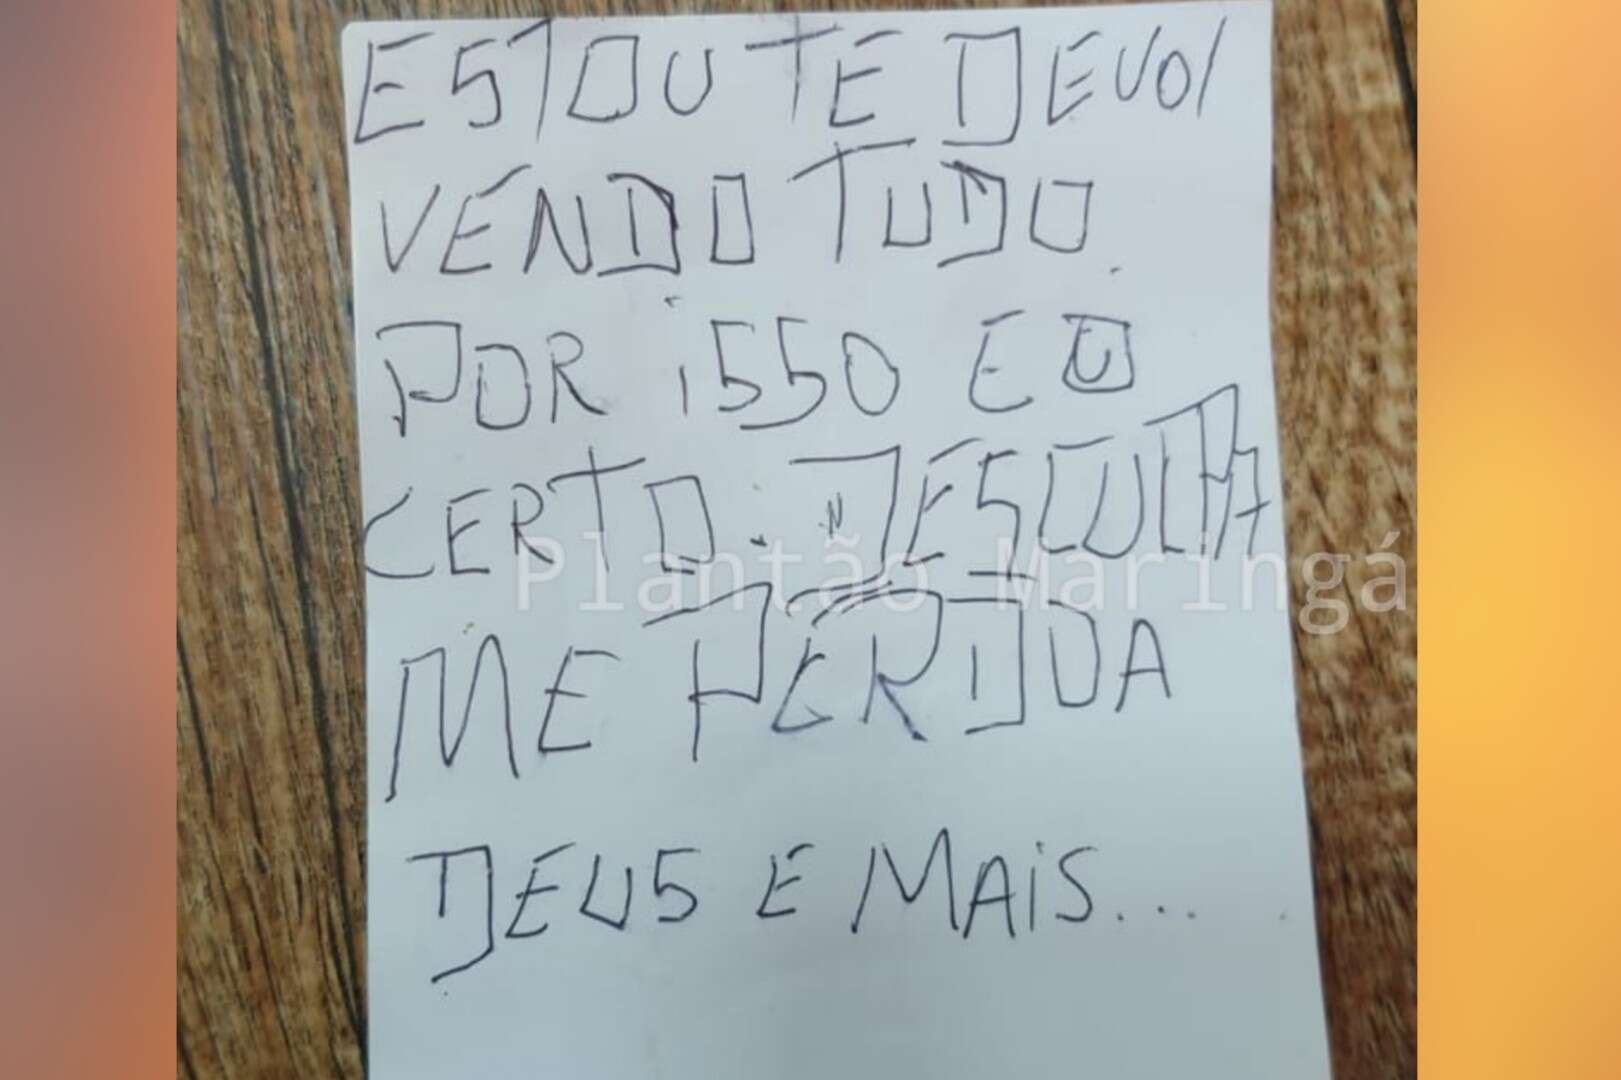 ESTOU TE DEVOl
VENDO TUDO
POR iSSO E O
CERTO. DESCULPA
Plantão Maringá
ME PERDOA
DEUS E MAiS...